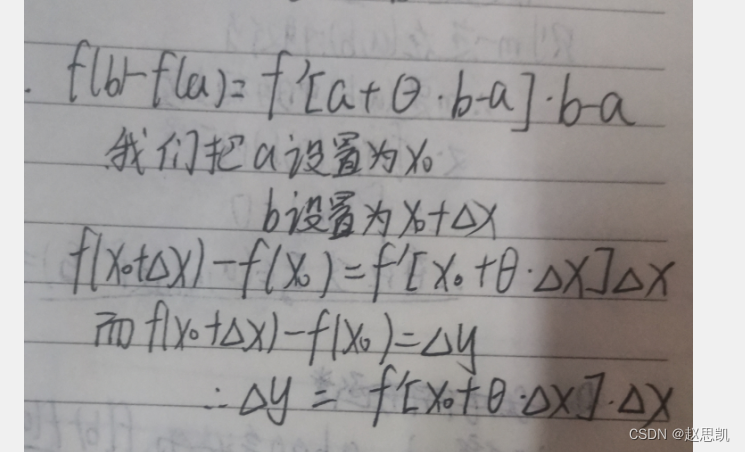 f(b)-f(a)=f'[a+θ·b-a]·b-a
我们把a设置为x₀
b设置为x₀+Δx
f(x₀+Δx)-f(x₀)=f'[x₀+θ·Δx]Δx
而f(x₀+Δx)-f(x₀)=Δy
∴Δy=f'[x₀+θ·Δx]·Δx
CSDN @赵思凯